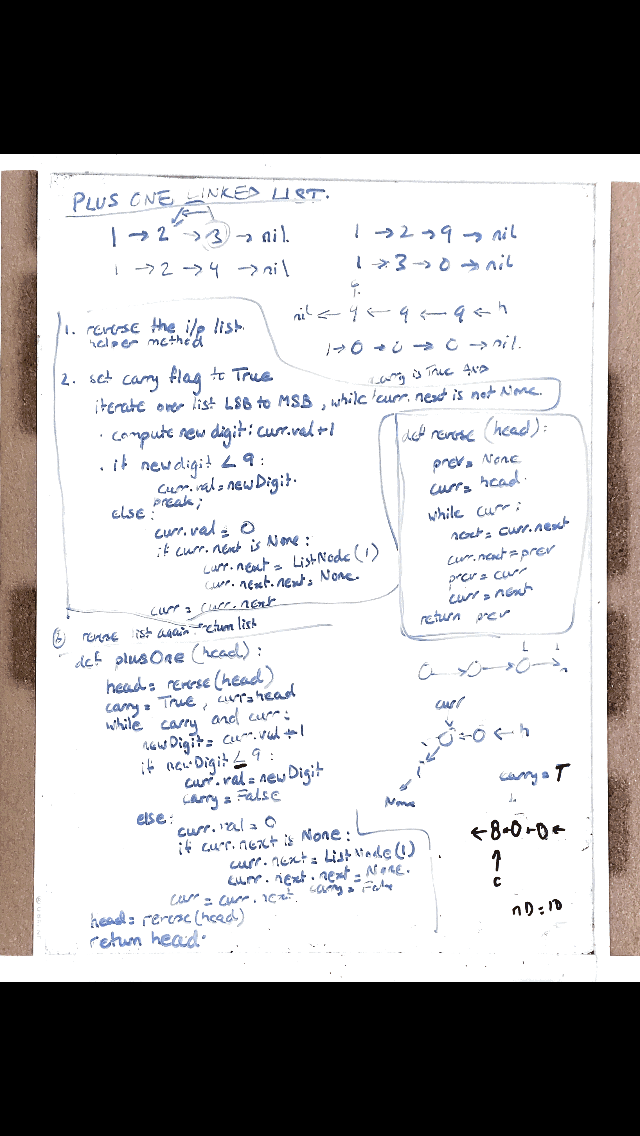 PLUS ONE LINKED LIST.
1 → 2 → 3 → nil.
1 → 2 → 4 → nil
1 → 2 → 9 → nil
1 → 3 → 0 → nil
nil ← 9 ← 9 ← 9 ← h
1 → 0 → 0 → 0 → nil.
1. reverse the i/p list.
helper method
2. set carry flag to True
carry is True and
iterate over list LSB to MSB, while curr.next is not None.
· compute new digit: curr.val+1
· if newdigit ∠ 9:
curr.val = newDigit.
break;
else:
curr.val = 0
if curr.next is None:
curr.next = ListNode(1)
curr.next.next = None.
curr = curr.next
3 reverse list again return list
def reverse (head):
prev = None
curr = head.
while curr:
next = curr.next
curr.next = prev
prev = curr
curr = next
return prev
def plusOne (head):
head = reverse(head)
carry = True, curr = head
while carry and curr:
newDigit = curr.val + 1
if newDigit ∠ 9:
curr.val = newDigit
carry = False
else:
curr.val = 0
if curr.next is None:
curr.next = ListNode(1)
curr.next.next = None.
carry = False
curr = curr.next.
head = reverse(head)
return head.
curr
← h
None
carry = T
← 8 ← 0 ← 0 ←
↑
c
nD = 10